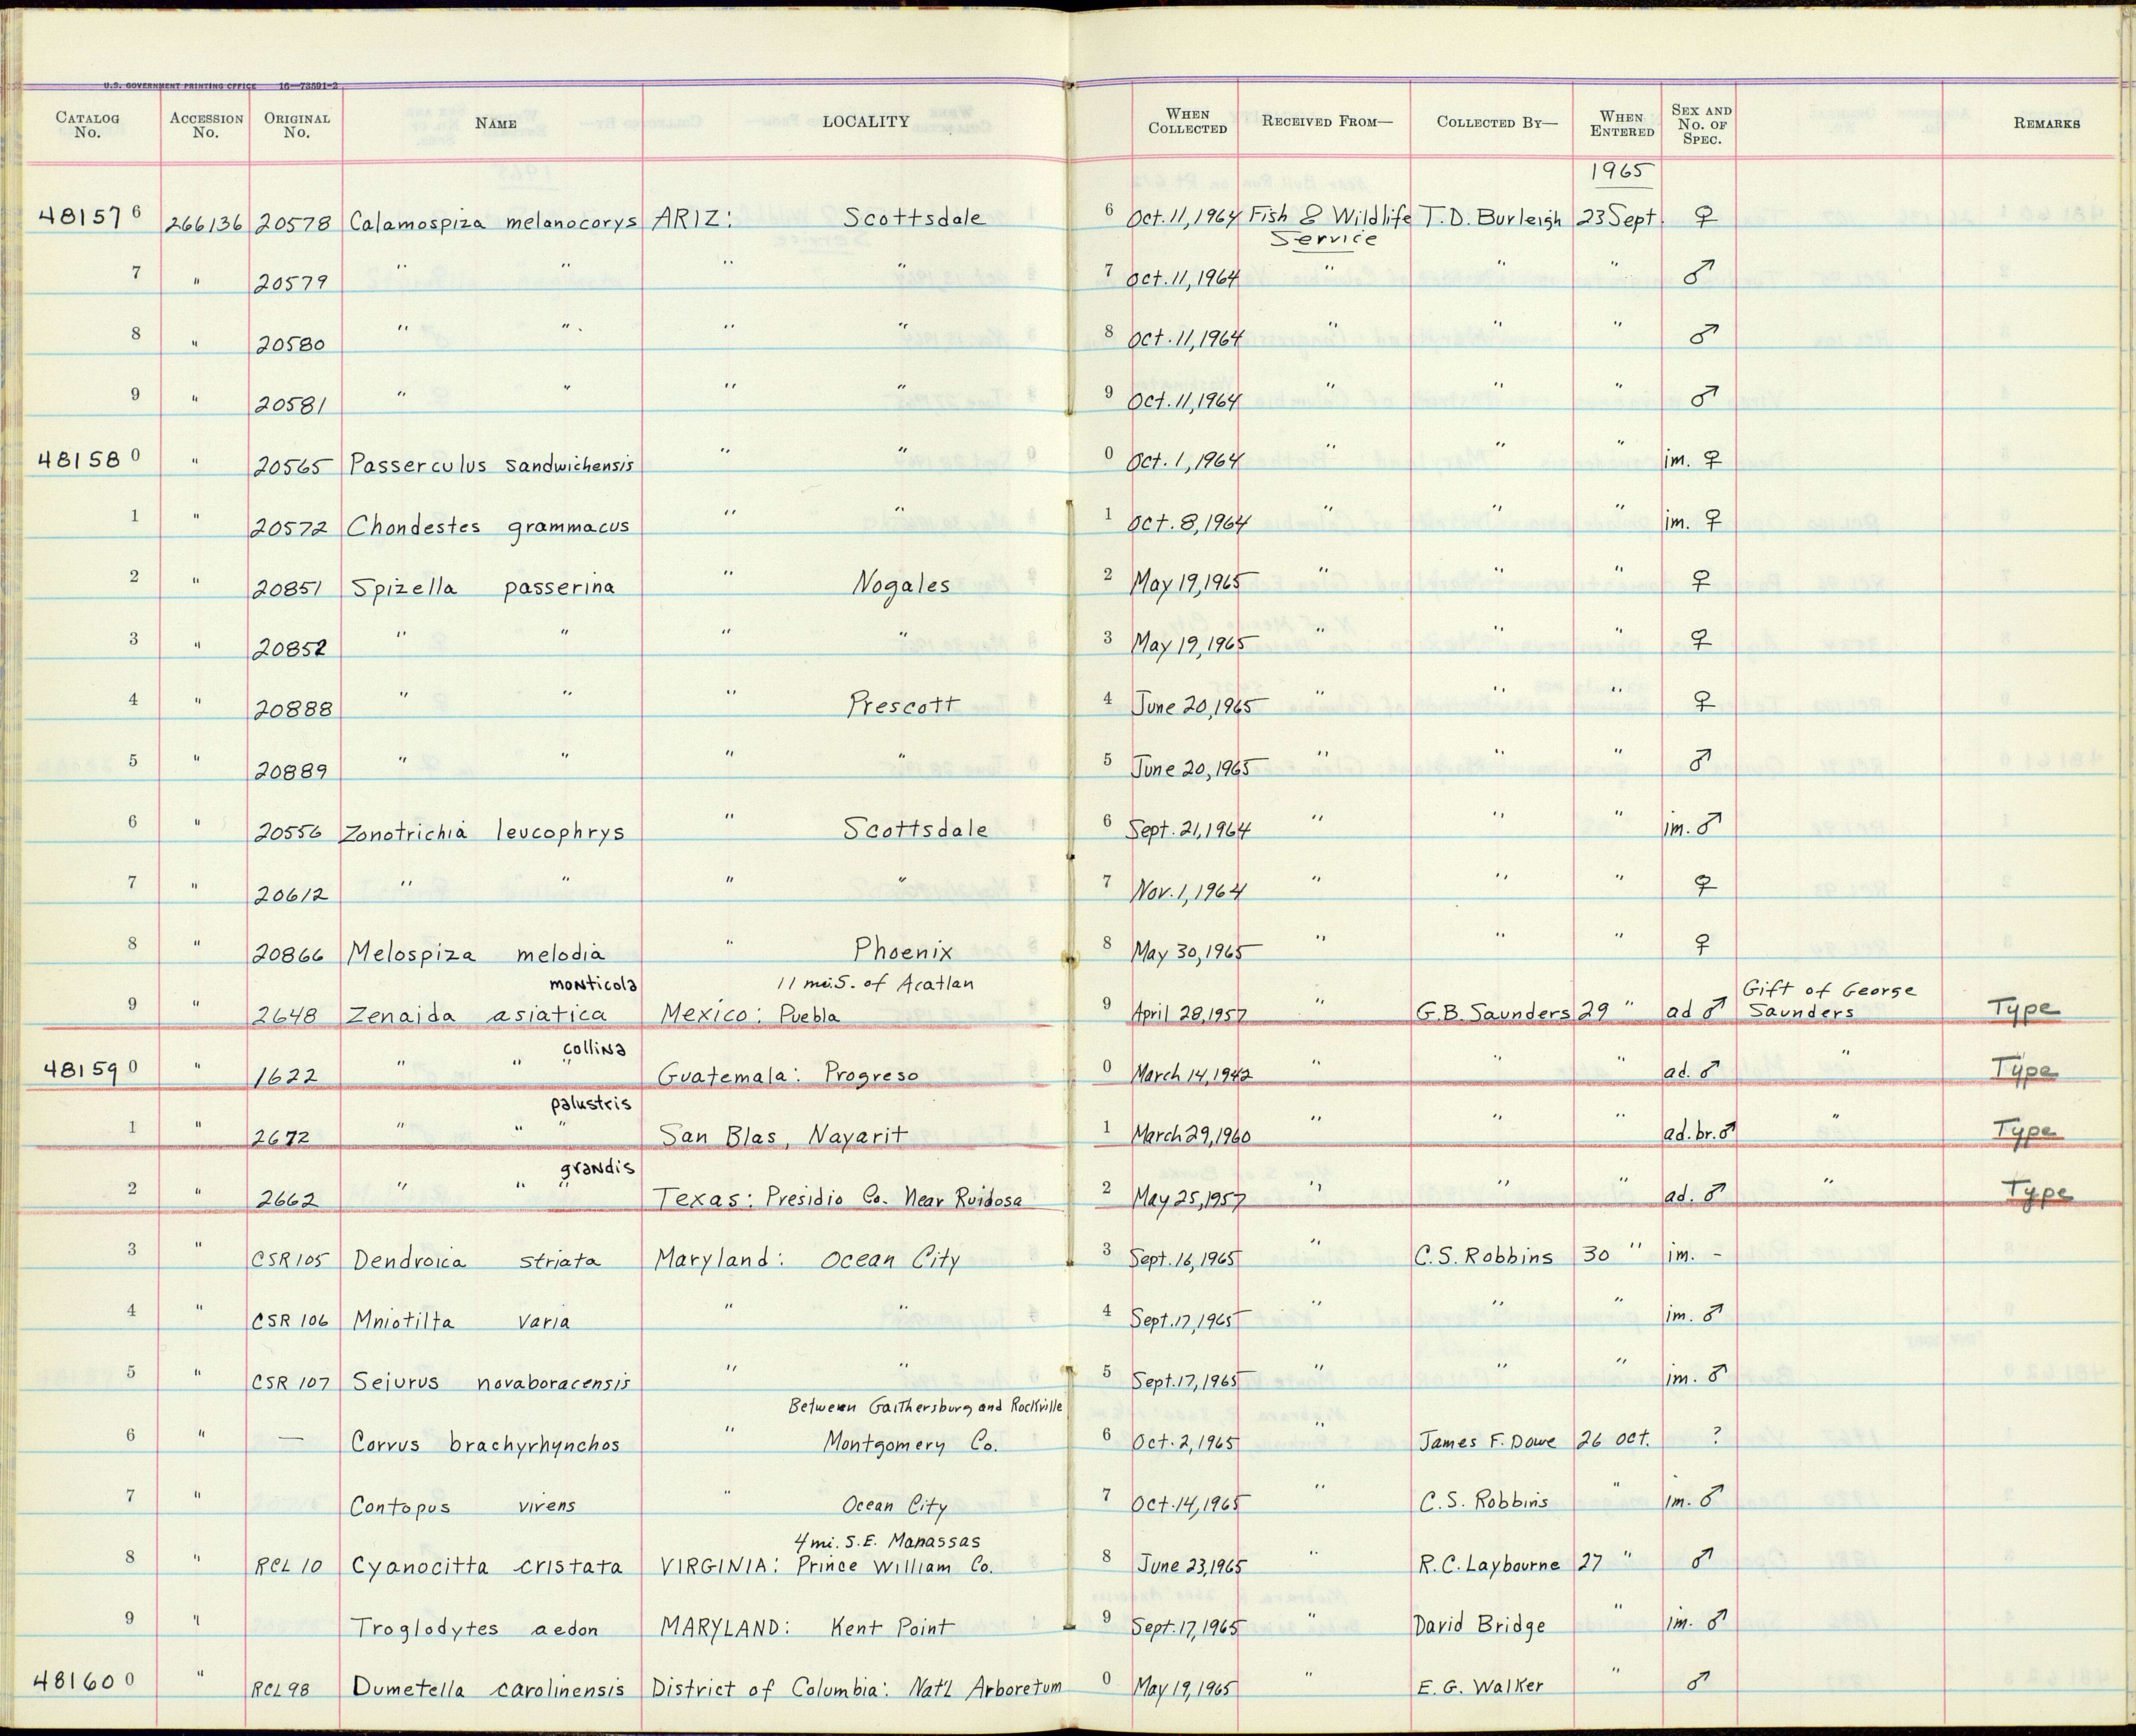 U.S. GOVERNMENT PRINTING OFFICE 16—73591-2
CATALOG No. ACCESSION No. ORIGINAL No. NAME LOCALITY WHEN COLLECTED RECEIVED FROM— COLLECTED BY— WHEN ENTERED SEX AND No. OF SPEC. REMARKS
1965
481576 266136 20578 Calamospiza melanocorys ARIZ: Scottsdale 6 Oct. 11, 1964 Fish & Wildlife Service T. D. Burleigh 23 Sept. ♀
7 " 20579 " " " " 7 Oct. 11, 1964 " " " ♂
8 " 20580 " " " " 8 Oct. 11, 1964 " " " ♂
9 " 20581 " " " " 9 Oct. 11, 1964 " " " ♂
481580 " 20565 Passerculus sandwichensis " " 0 Oct. 1, 1964 " " " im. ♀
1 " 20572 Chondestes grammacus " " 1 Oct. 8, 1964 " " " im. ♀
2 " 20851 Spizella passerina " Nogales 2 May 19, 1965 " " " ♀
3 " 20852 " " " " 3 May 19, 1965 " " " ♀
4 " 20888 " " " Prescott 4 June 20, 1965 " " " ♀
5 " 20889 " " " " 5 June 20, 1965 " " " ♂
6 " 20556 Zonotrichia leucophrys " Scottsdale 6 Sept. 21, 1964 " " " im. ♂
7 " 20612 " " " " 7 Nov. 1, 1964 " " " ♀
8 " 20866 Melospiza melodia " Phoenix 8 May 30, 1965 " " " ♀
monticola 11 mi. S. of Acatlan Gift of George
9 " 2648 Zenaida asiatica Mexico: Puebla 9 April 28, 1957 " G.B. Saunders 29 " ad ♂ Saunders Type
collina
481590 " 1622 " " " Guatemala: Progreso 0 March 14, 1942 " " " ad. ♂ " Type
palustris
1 " 2672 " " " San Blas, Nayarit 1 March 29, 1960 " " " ad. br. ♂ " Type
grandis
2 " 2662 " " " Texas: Presidio Co. Near Ruidosa 2 May 25, 1957 " " " ad. ♂ " Type
3 " CSR 105 Dendroica striata Maryland: Ocean City 3 Sept. 16, 1965 " C.S. Robbins 30 " im. -
4 " CSR 106 Mniotilta varia " " 4 Sept. 17, 1965 " " " im. ♂
5 " CSR 107 Seiurus novaboracensis " " 5 Sept. 17, 1965 " " " im. ♂
Between Gaithersburg and Rockville
6 " — Corvus brachyrhynchos " Montgomery Co. 6 Oct. 2, 1965 " James F. Dowe 26 Oct. ?
7 " Contopus virens " Ocean City 7 Oct. 14, 1965 " C.S. Robbins " im. ♂
4 mi. S.E. Manassas
8 " RCL 10 Cyanocitta cristata VIRGINIA: Prince William Co. 8 June 23, 1965 " R.C. Laybourne 27 " ♂
9 " Troglodytes aedon MARYLAND: Kent Point 9 Sept. 17, 1965 " David Bridge " im. ♂
481600 " RCL 98 Dumetella carolinensis District of Columbia: Nat'l Arboretum 0 May 19, 1965 " E. G. Walker " ♂